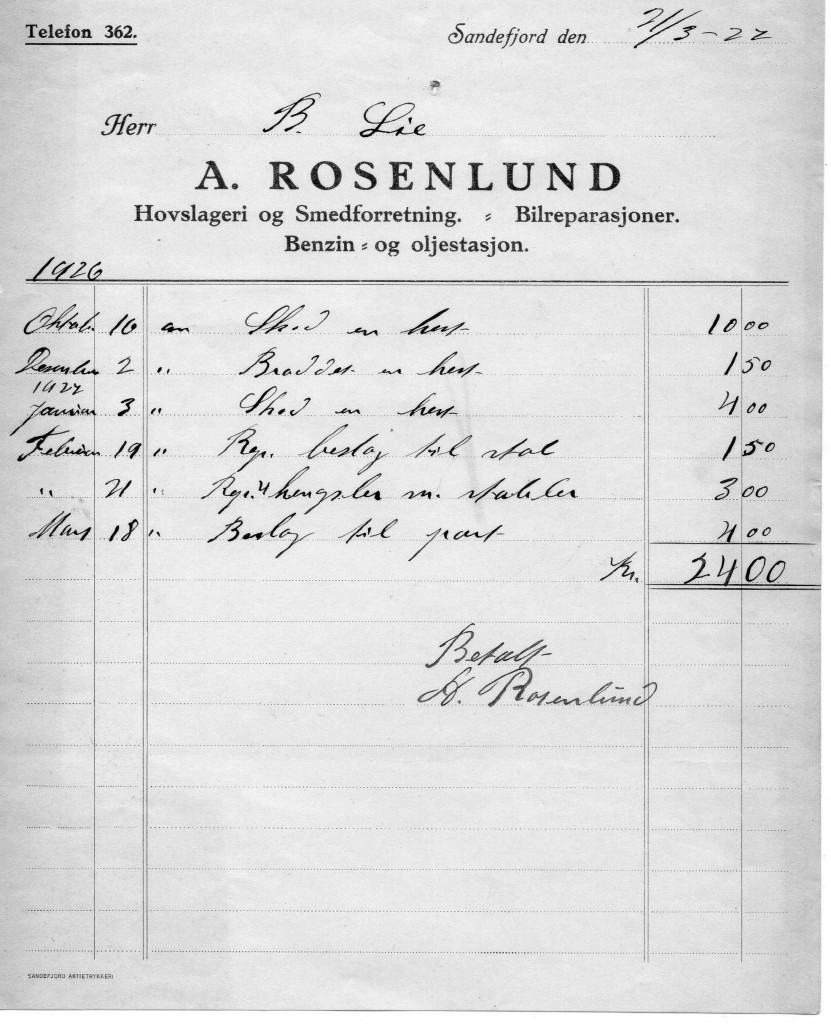 Telefon 362.
Sandefjord den 21/3-27
Herr B. Lie
A. ROSENLUND
Hovslageri og Smedforretning. Bilreparasjoner.
Benzin- og oljestasjon.
1926
Oktob. 16 an Skod en hest 10 00
Desember 2 " Broddet en hest 1 50
1927
Januar 3 " Skod en hest 4 00
Februar 19 " Rep. beslag til stol 1 50
" 21 " Rep. 4 hengsler m. stabler 3 00
Mars 18 " Beslag til port 4 00
Kr. 24 00
Betalt
A. Rosenlund
SANDEFJORD AKTIETRYKKERI